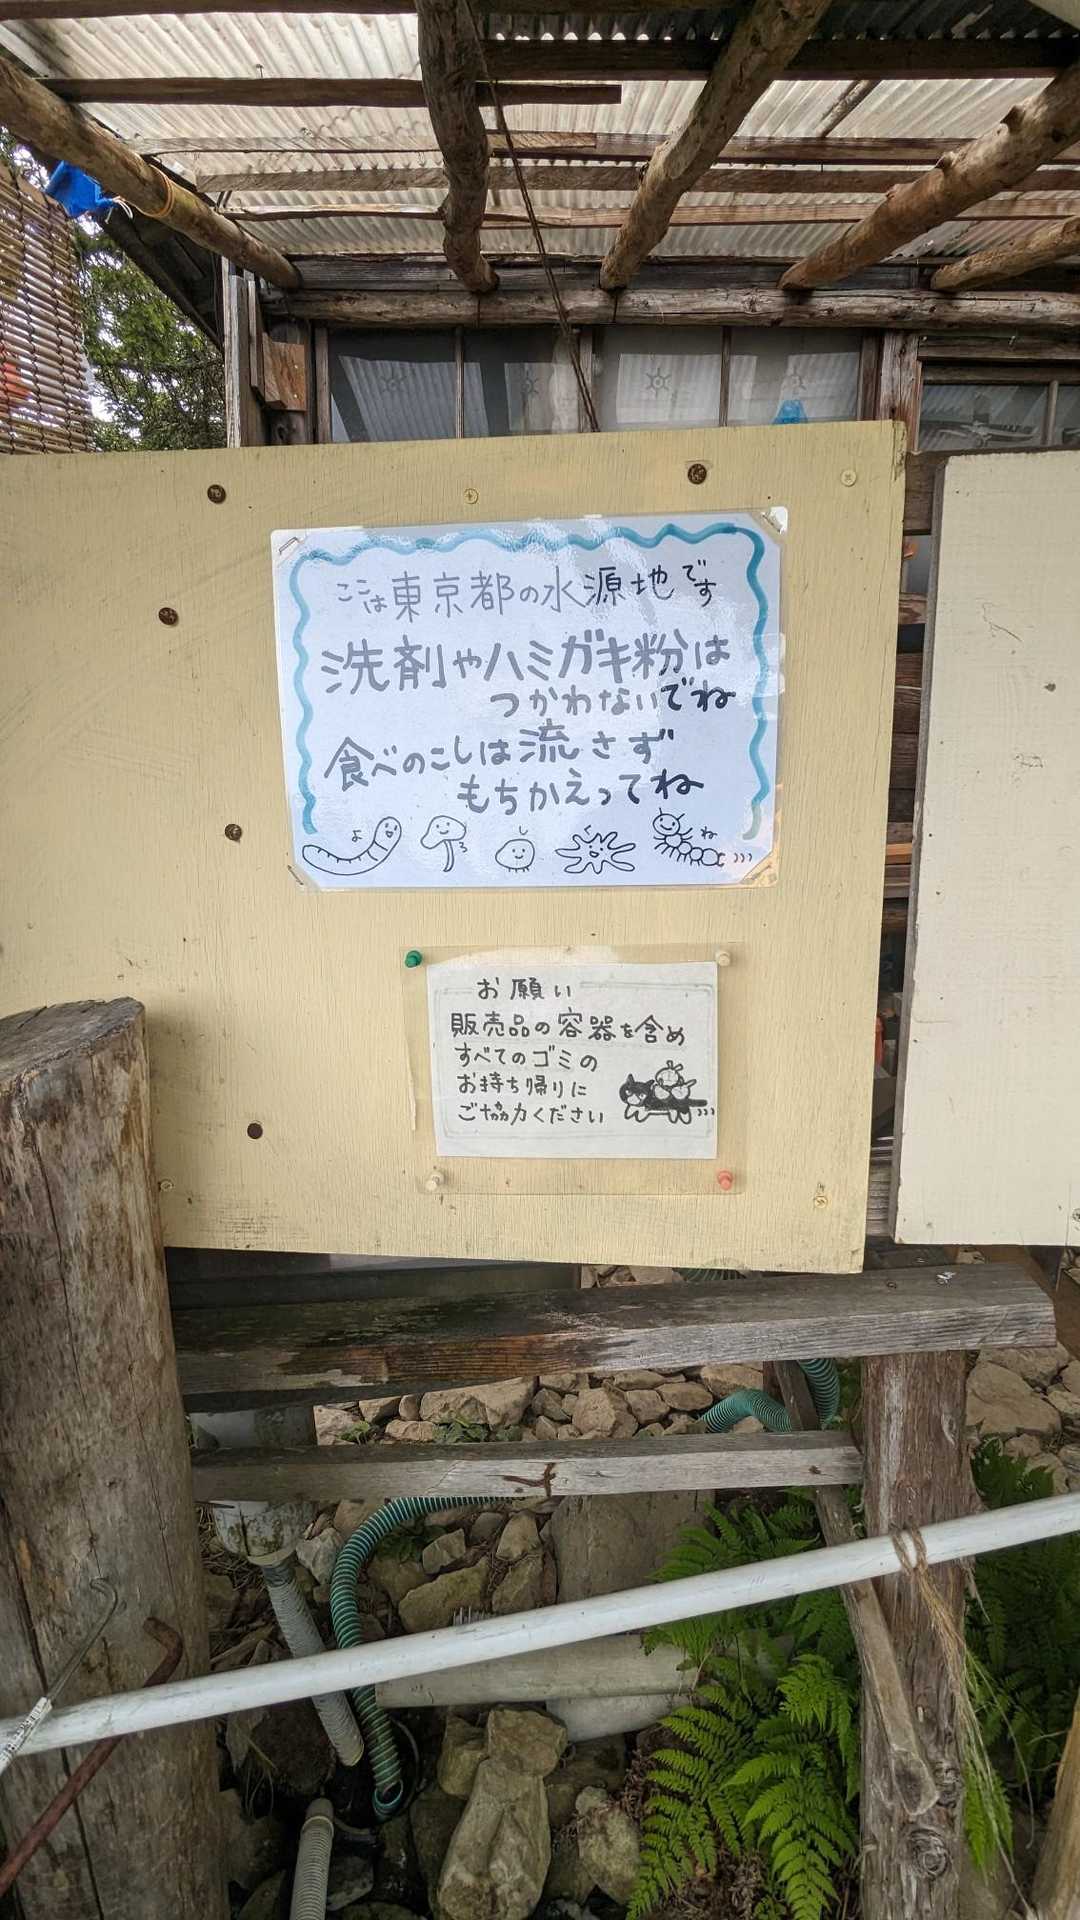 ここは東京都の水源地です
洗剤やハミガキ粉は
つかわないでね
食べのこしは流さず
もちかえってね
よ
ろ
し
く
ね
お願い
販売品の容器を含め
すべてのゴミの
お持ち帰りに
ご協力ください